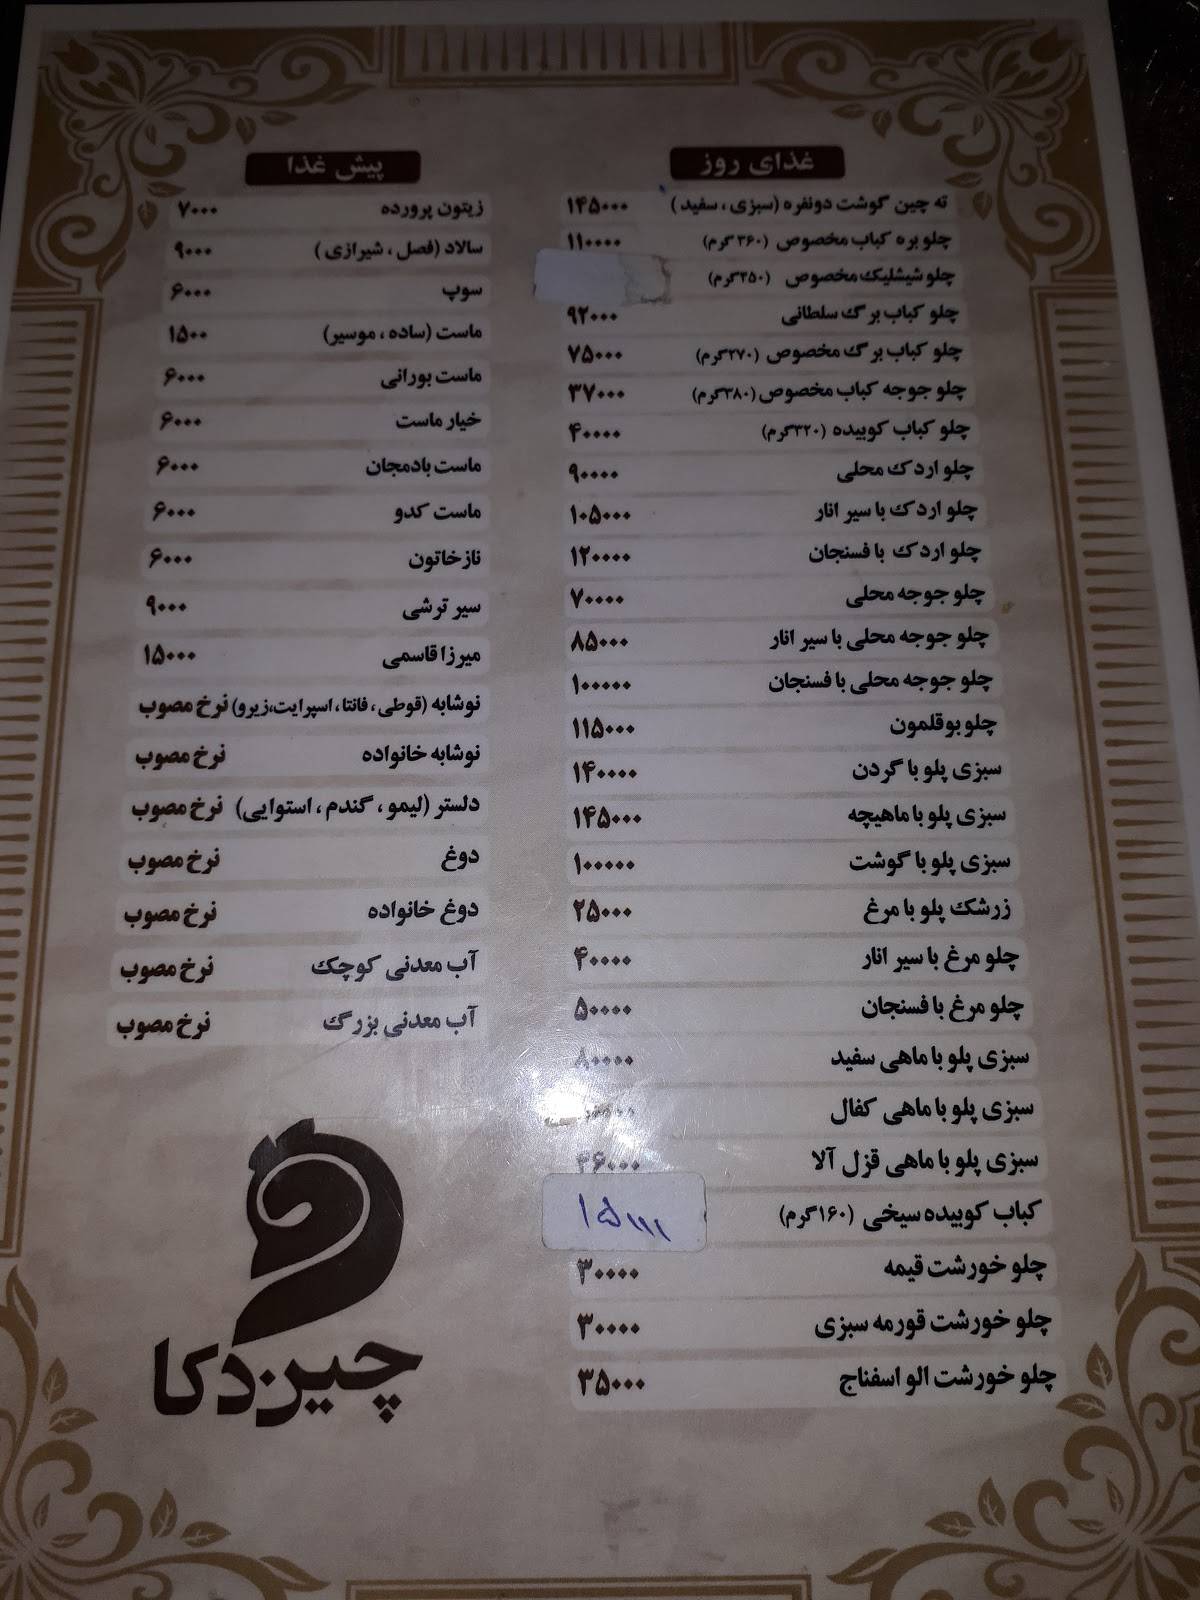 غذای روز
ته چین گوشت دونفره (سبزی ، سفید ) ۱۴۵۰۰۰
چلو بره کباب مخصوص (۳۶۰ گرم) ۱۱۰۰۰۰
چلو شیشلیک مخصوص (۲۵۰گرم)
چلو کباب برگ سلطانی ۹۲۰۰۰
چلو کباب برگ مخصوص (۲۷۰گرم) ۷۵۰۰۰
چلو جوجه کباب مخصوص (۳۸۰گرم) ۳۷۰۰۰
چلو کباب کوبیده (۳۲۰گرم) ۴۰۰۰۰
چلو اردک محلی ۹۰۰۰۰
چلو اردک با سیر انار ۱۰۵۰۰۰
چلو اردک با فسنجان ۱۲۰۰۰۰
چلو جوجه محلی ۷۰۰۰۰
چلو جوجه محلی با سیر انار ۸۵۰۰۰
چلو جوجه محلی با فسنجان ۱۰۰۰۰۰
چلو بوقلمون ۱۱۵۰۰۰
سبزی پلو با گردن ۱۴۰۰۰۰
سبزی پلو با ماهیچه ۱۴۵۰۰۰
سبزی پلو با گوشت ۱۰۰۰۰۰
زرشک پلو با مرغ ۲۵۰۰۰
چلو مرغ با سیر انار ۴۰۰۰۰
چلو مرغ با فسنجان ۵۰۰۰۰
سبزی پلو با ماهی سفید ۸۰۰۰۰
سبزی پلو با ماهی کفال
سبزی پلو با ماهی قزل آلا
کباب کوبیده سیخی (۱۶۰گرم) ۱۵۱۱۱
چلو خورشت قیمه ۳۰۰۰۰
چلو خورشت قورمه سبزی ۳۰۰۰۰
چلو خورشت الو اسفناج ۳۵۰۰۰
پیش غذا
زیتون پرورده ۷۰۰۰
سالاد (فصل ، شیرازی ) ۹۰۰۰
سوپ ۶۰۰۰
ماست (ساده ، موسیر) ۱۵۰۰
ماست بورانی ۶۰۰۰
خیار ماست ۶۰۰۰
ماست بادمجان ۶۰۰۰
ماست کدو ۶۰۰۰
نازخاتون ۶۰۰۰
سیر ترشی ۹۰۰۰
میرزا قاسمی ۱۵۰۰۰
نوشابه (قوطی ، فانتا ، اسپرایت،زیرو) نرخ مصوب
نوشابه خانواده نرخ مصوب
دلستر (لیمو ، گندم ، استوایی) نرخ مصوب
دوغ نرخ مصوب
دوغ خانواده نرخ مصوب
آب معدنی کوچک نرخ مصوب
آب معدنی بزرگ نرخ مصوب
چین دکا